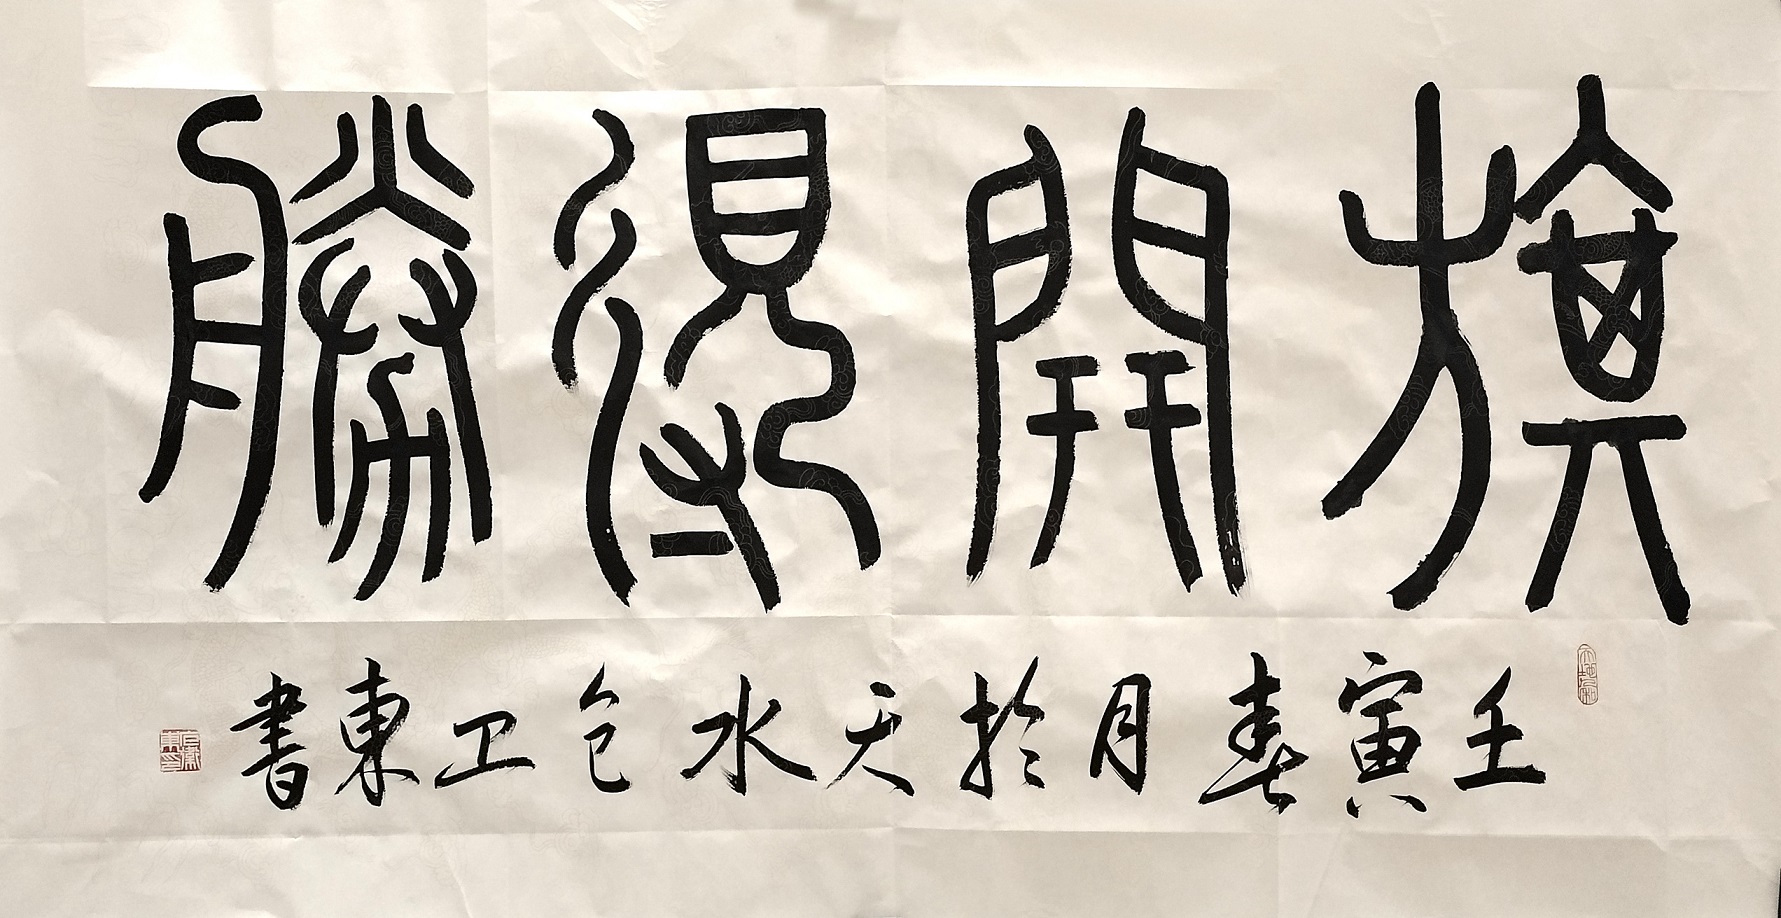 旗開得勝
壬寅春月於天水包卫東書